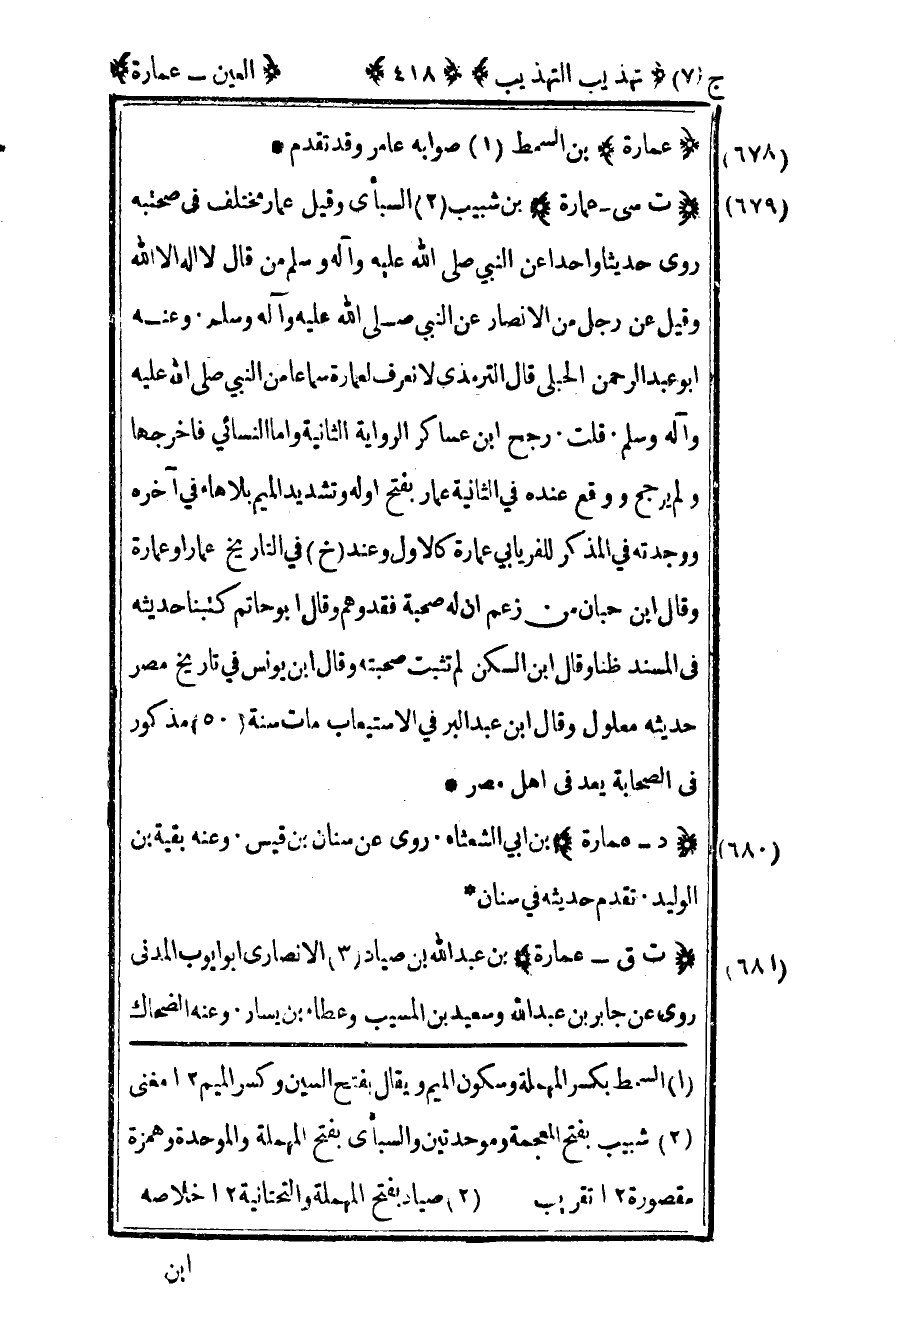 ج (٧) ﴿ تهذيب التهذيب ﴾ ﴿ ٤١٨ ﴾ ﴿ العين - عمارة ﴾
(٦٧٨) ﴿ عمارة ﴾ بن السمط (١) صوابه عامر وقد تقدم *
(٦٧٩) ﴿ ت سى - عمارة ﴾ بن شبيب (٢) السبأى وقيل عمار مختلف فى صحتبه
روى حديثا واحدا عن النبي صلى الله عليه وآله وسلم من قال لا اله الا الله
وقيل عن رجل من الانصار عن النبي صلى الله عليه وآله وسلم · وعنه
ابو عبد الرحمن الحبلى قال الترمذى لا نعرف لعمارة سماعا من النبي صلى الله عليه
وآله وسلم · قلت · رجح ابن عساكر الرواية الثانية واما النسائي فاخرجها
ولم يرجح ووقع عنده في الثانية عمار بفتح اوله وتشديد الميم بلا هاء في آخره
ووجدته في المذكر للفريابي عمارة كالاول وعند (خ) في التاريخ عمار او عمارة
وقال ابن حبان من زعم ان له صحبة فقد وهم وقال ابو حاتم كتبنا حديثه
فى المسند ظنا وقال ابن السكن لم تثبت صحبته وقال ابن يونس في تاريخ مصر
حديثه معلول وقال ابن عبد البر في الاستيعاب مات سنة (٥٠) مذكور
فى الصحابة يعد فى اهل مصر *
(٦٨٠) ﴿ د - عمارة ﴾ بن ابي الشعثاء · روى عن سنان بن قيس · وعنه بقية بن
الوليد · تقدم حديثه في سنان *
(٦٨١) ﴿ ت ق - عمارة ﴾ بن عبد الله بن صياد (٣) الانصارى ابو ايوب المدنى
روى عن جابر بن عبد الله وسعيد بن المسيب وعطاء بن يسار · وعنه الضحاك
(١) السمط بكسر المهملة وسكون الميم ويقال بفتح السين وكسر الميم ١٢ مغنى
(٢) شبيب بفتح المعجمة وموحدتين والسبأى بفتح المهملة والموحدة وهمزة
مقصورة ١٢ تقريب (٢) صياد بفتح المهملة والتحتانية ١٢ خلاصه
ابن